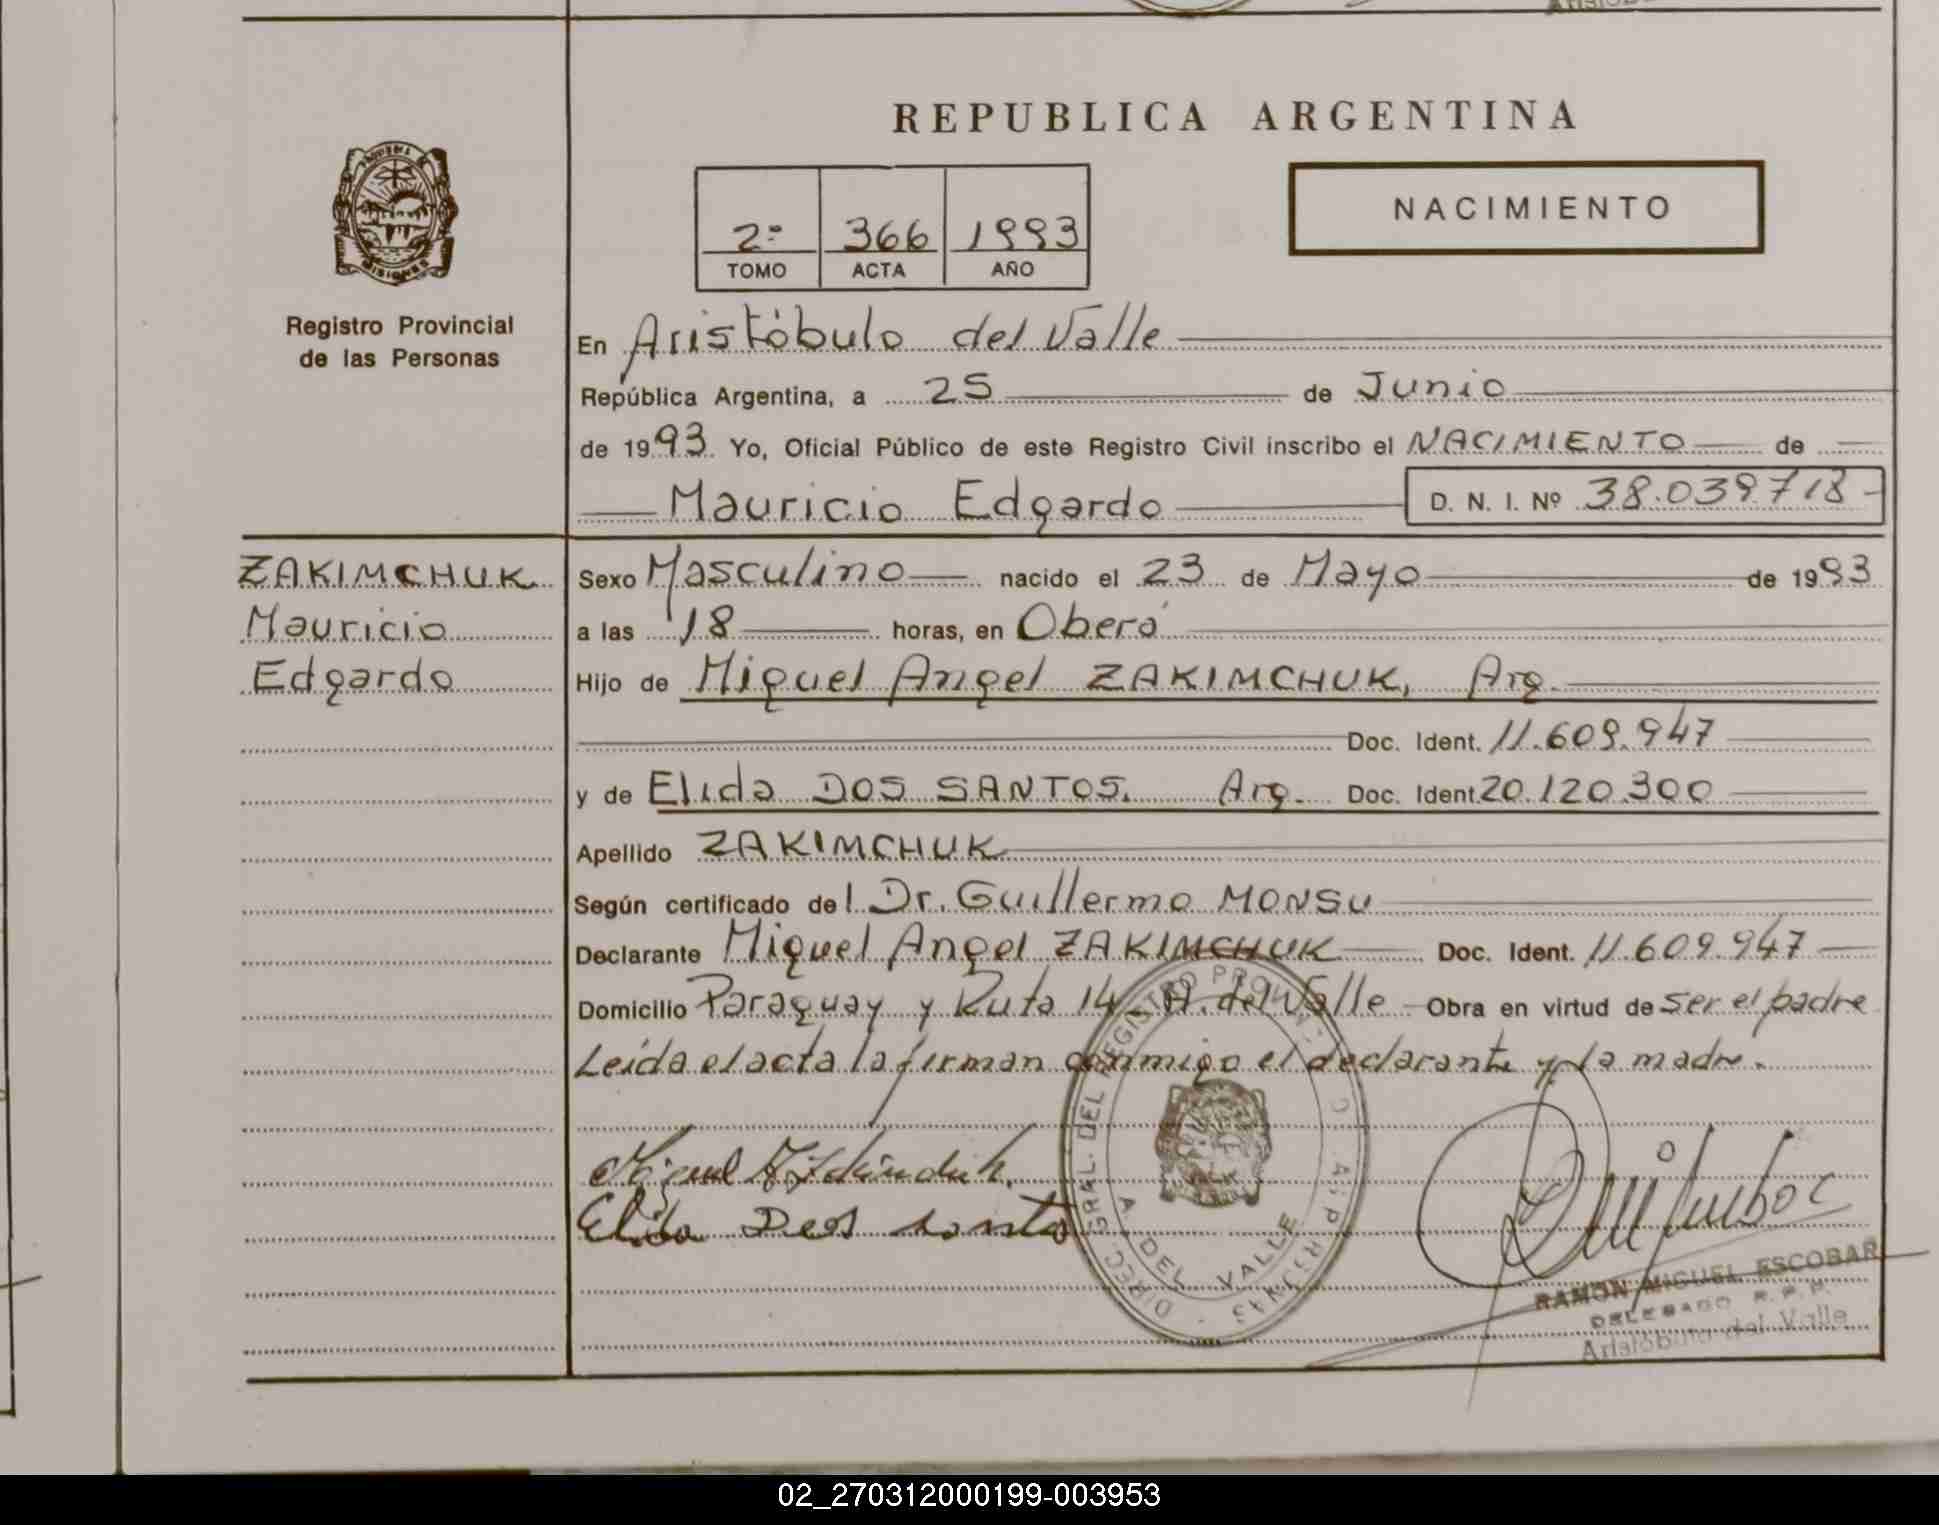 REPUBLICA ARGENTINA
PROVINCIA DE
MISIONES
Registro Provincial
de las Personas
2º 366 1993
TOMO ACTA AÑO
NACIMIENTO
En Aristóbulo del Valle
República Argentina, a 25 de Junio
de 1993. Yo, Oficial Público de este Registro Civil inscribo el NACIMIENTO de
Mauricio Edgardo D. N. I. Nº 38.039718-
ZAKIMCHUK
Mauricio
Edgardo
Sexo Masculino nacido el 23 de Mayo de 1993
a las 18 horas, en Oberá
Hijo de Miguel Angel ZAKIMCHUK, Arg.
Doc. Ident. 11.609.947
y de Elida DOS SANTOS. Arg. Doc. Ident. 20.120.300
Apellido ZAKIMCHUK
Según certificado del Dr. Guillermo MONSU
Declarante Miguel Angel ZAKIMCHUK Doc. Ident. 11.609.947
Domicilio Paraguay y Ruta 14 - A. del Valle Obra en virtud de ser el padre
Leída el acta la firman conmigo el declarante y la madre.
Elida Dos Santos
DIREC. GRAL. DEL REGISTRO PROV.
A. DEL VALLE
RAMON MIGUEL ESCOBAR
DELEGADO R.P.P.
Aristóbulo del Valle
02_270312000199-003953